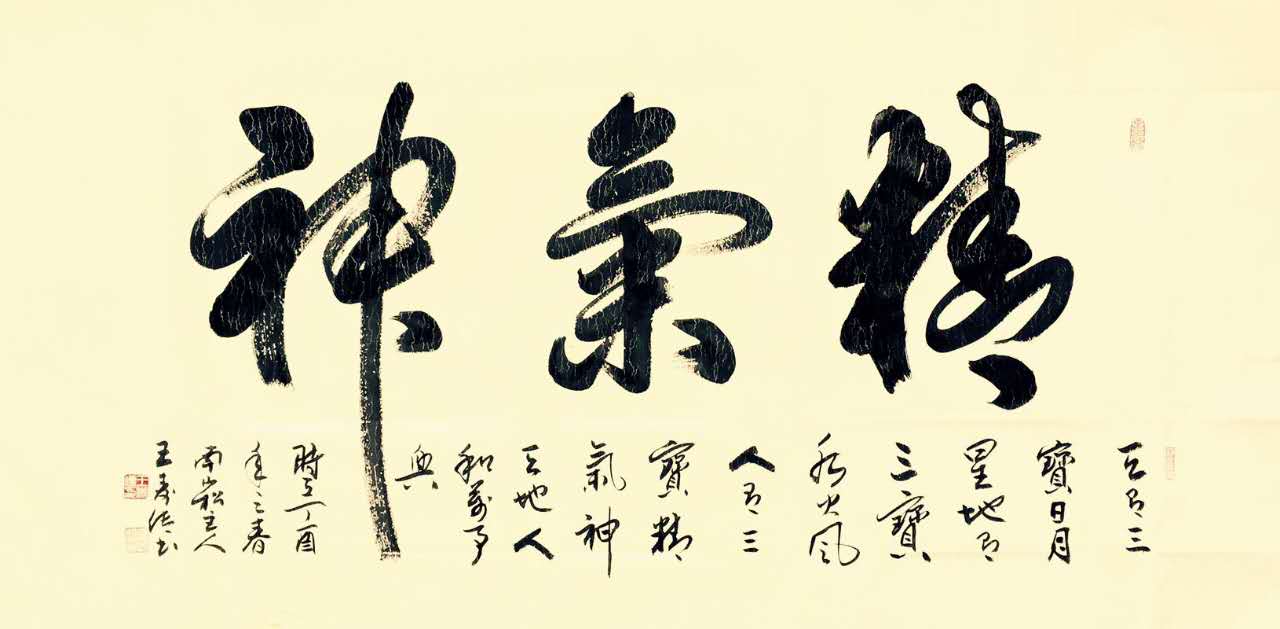 精氣神
天有三
寶日月
星地有
三寶
水火風
人有三
寶精
氣神
天地人
和萬事
興
時在丁酉
年之春
南崧主人
王寿书